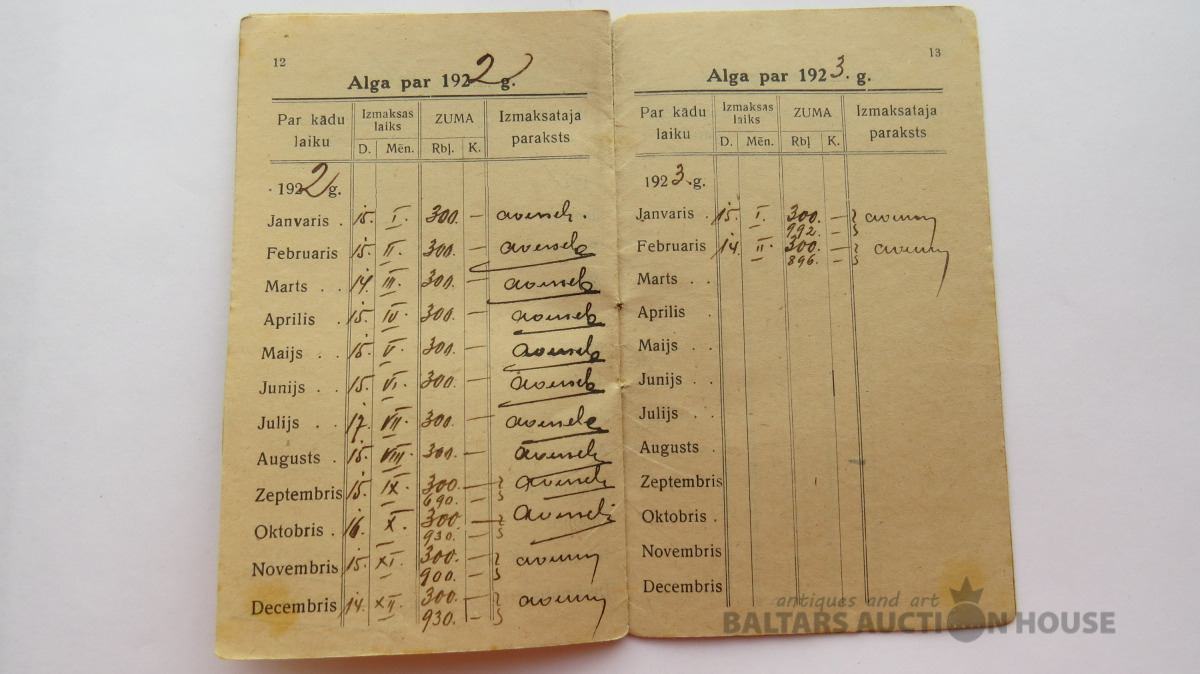 12
Alga par 1922 g.
Par kādu laiku Izmaksas laiks ZUMA Izmaksataja paraksts
D. Mēn. Rbļ. K.
1922 g.
Janvaris . 15. I. 300. —
Februaris 15. II. 300. —
Marts . . 14. III. 300. —
Aprilis . 15. IV. 300. —
Maijs . . 15. V. 300. —
Junijs . . 15. VI. 300. —
Julijs . 17. VII. 300. —
Augusts . 15. VIII. 300. —
Zeptembris 15. IX. 300. —
690. —
Oktobris . 16. X. 300. —
930. —
Novembris 15. XI. 300. —
900. —
Decembris 14. XII. 300. —
930. —
13
Alga par 1923. g.
Par kādu laiku Izmaksas laiks ZUMA Izmaksataja paraksts
D. Mēn. Rbļ K.
1923. g.
Janvaris . 15. I. 300. —
992. —
Februaris 14. II. 300. —
896. —
Marts . .
Aprilis .
Maijs . .
Junijs . .
Julijs . .
Augusts .
Zeptembris
Oktobris .
Novembris
Decembris
antiques and art
BALTARS AUCTION HOUSE